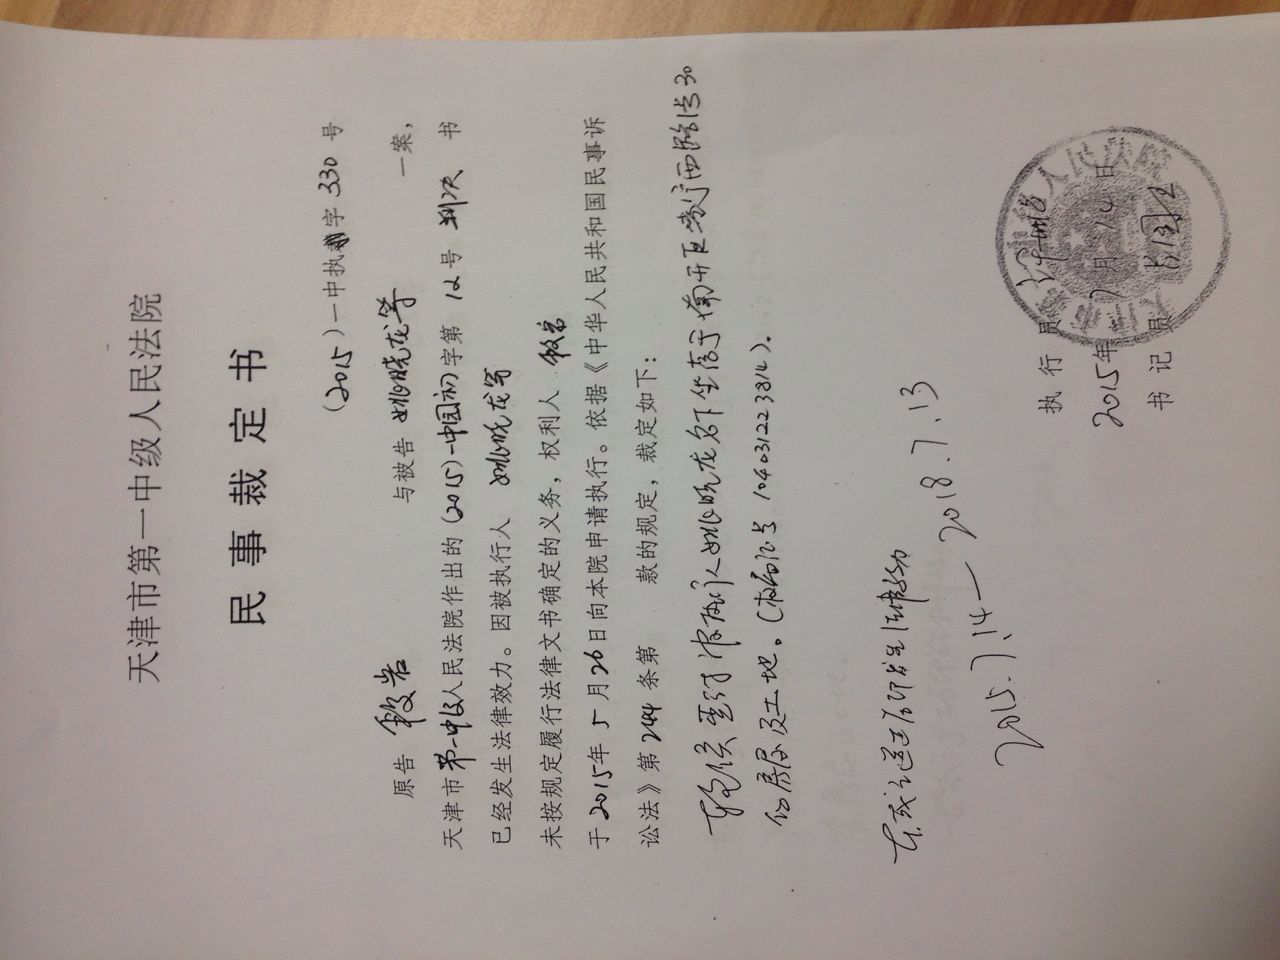 天津市第一中级人民法院
民事裁定书
(2015)一中执字330号
原告 段岩 与被告 姚晓龙等 一案，
天津市第一中级人民法院作出的(2015)一中园初字第12号判决书
已经发生法律效力。因被执行人 姚晓龙等
未按规定履行法律文书确定的义务，权利人 段岩
于2015年5月26日向本院申请执行。依据《中华人民共和国民事诉
讼法》第244条第 款的规定，裁定如下：
轮候查封被执行人姚晓龙名下坐落于南开区 西路 30
的房屋及土地。(权属证号 104031223814)。
本裁定送达后即发生法律效力
2015.7.14—2018.7.13
执行员
2015年7月14日
书记员